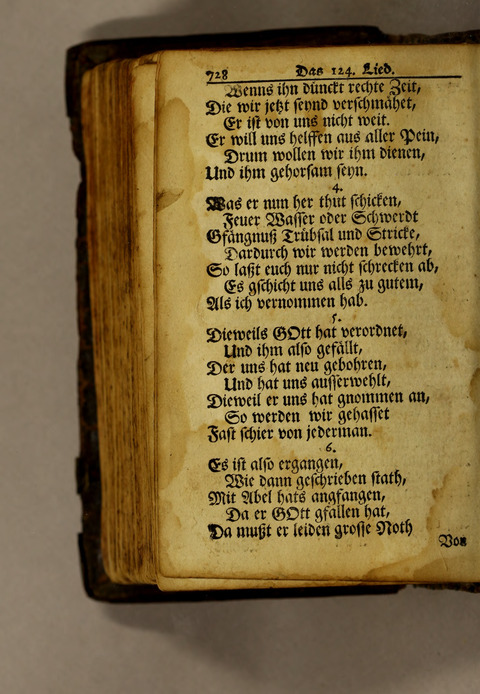 728 Das 124. Lied.
Wenns ihn dünckt rechte Zeit,
Die wir jetzt seynd verschmähet,
Er ist von uns nicht weit.
Er will uns helffen aus aller Pein,
Drum wollen wir ihm dienen,
Und ihm gehorsam seyn.
4.
Was er nun her thut schicken,
Feuer Wasser oder Schwerdt
Gfängnuß Trübsal und Stricke,
Dardurch wir werden bewehrt,
So laßt euch nur nicht schrecken ab,
Es gschicht uns alls zu gutem,
Als ich vernommen hab.
5.
Dieweils GOtt hat verordnet,
Und ihm also gefällt,
Der uns hat neu gebohren,
Und hat uns ausserwehlt,
Dieweil er uns hat gnommen an,
So werden wir gehasset
Fast schier von jederman.
6.
Es ist also ergangen,
Wie dann geschrieben stath,
Mit Abel hats angfangen,
Da er GOtt gfallen hat,
Da mußt er leiden grosse Noth
Von